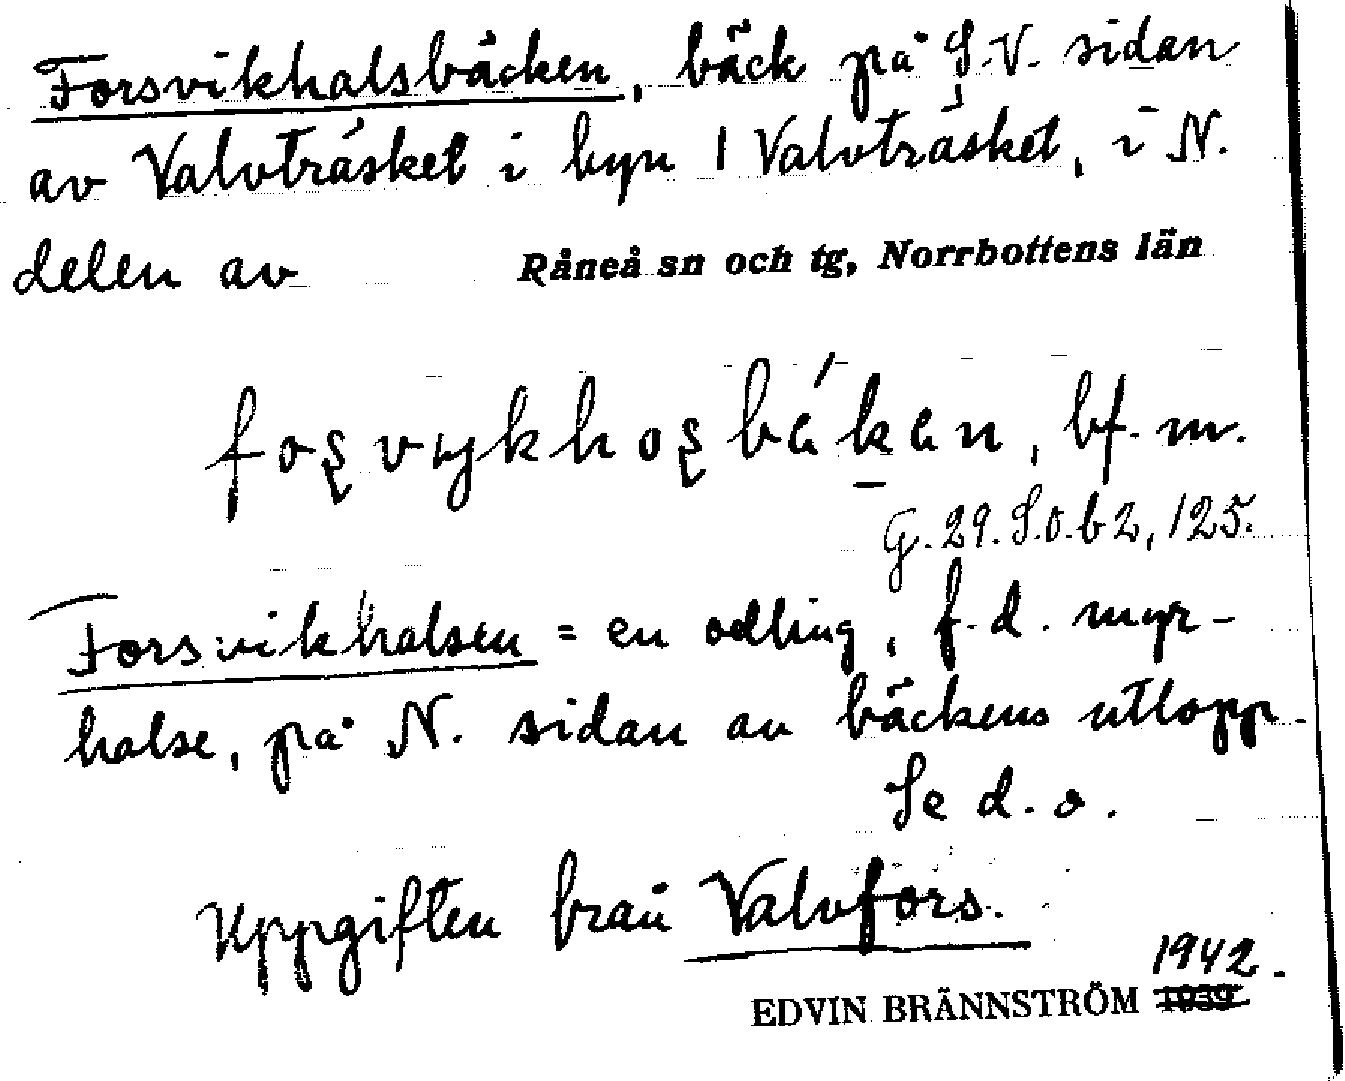 Forsvikhalsbäcken, bäck på S.V. sidan
av Valvträsket i byn 1 Valvträsket, i N.
delen av Råneå sn och tg, Norrbottens län
bf. m.
G. 29. S.o.b 2, 125.
Forsvikhalsen = en odling, f.d. myr-
halse, på N. sidan av bäckens utlopp.
Se d.o.
Uppgiften från Valvfors.
1942.
EDVIN BRÄNNSTRÖM 1939